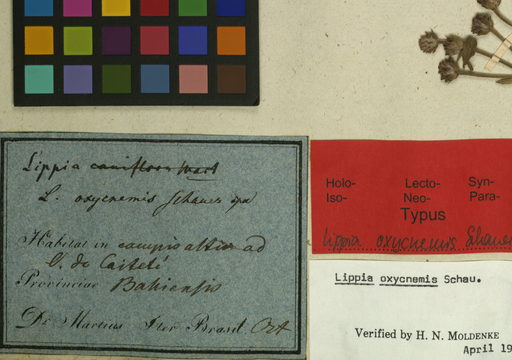 Lippia
L. oxycnemis Schauer
Habitat in campis altis ad
V. de Caiteté
Provinciae Bahiensis
Dr. Martius Iter Brasil.
Holo- Lecto- Syn-
Iso- Neo- Para-
Typus
Lippia oxycnemis Schauer
Lippia oxycnemis Schau.
Verified by H. N. MOLDENKE
April 19